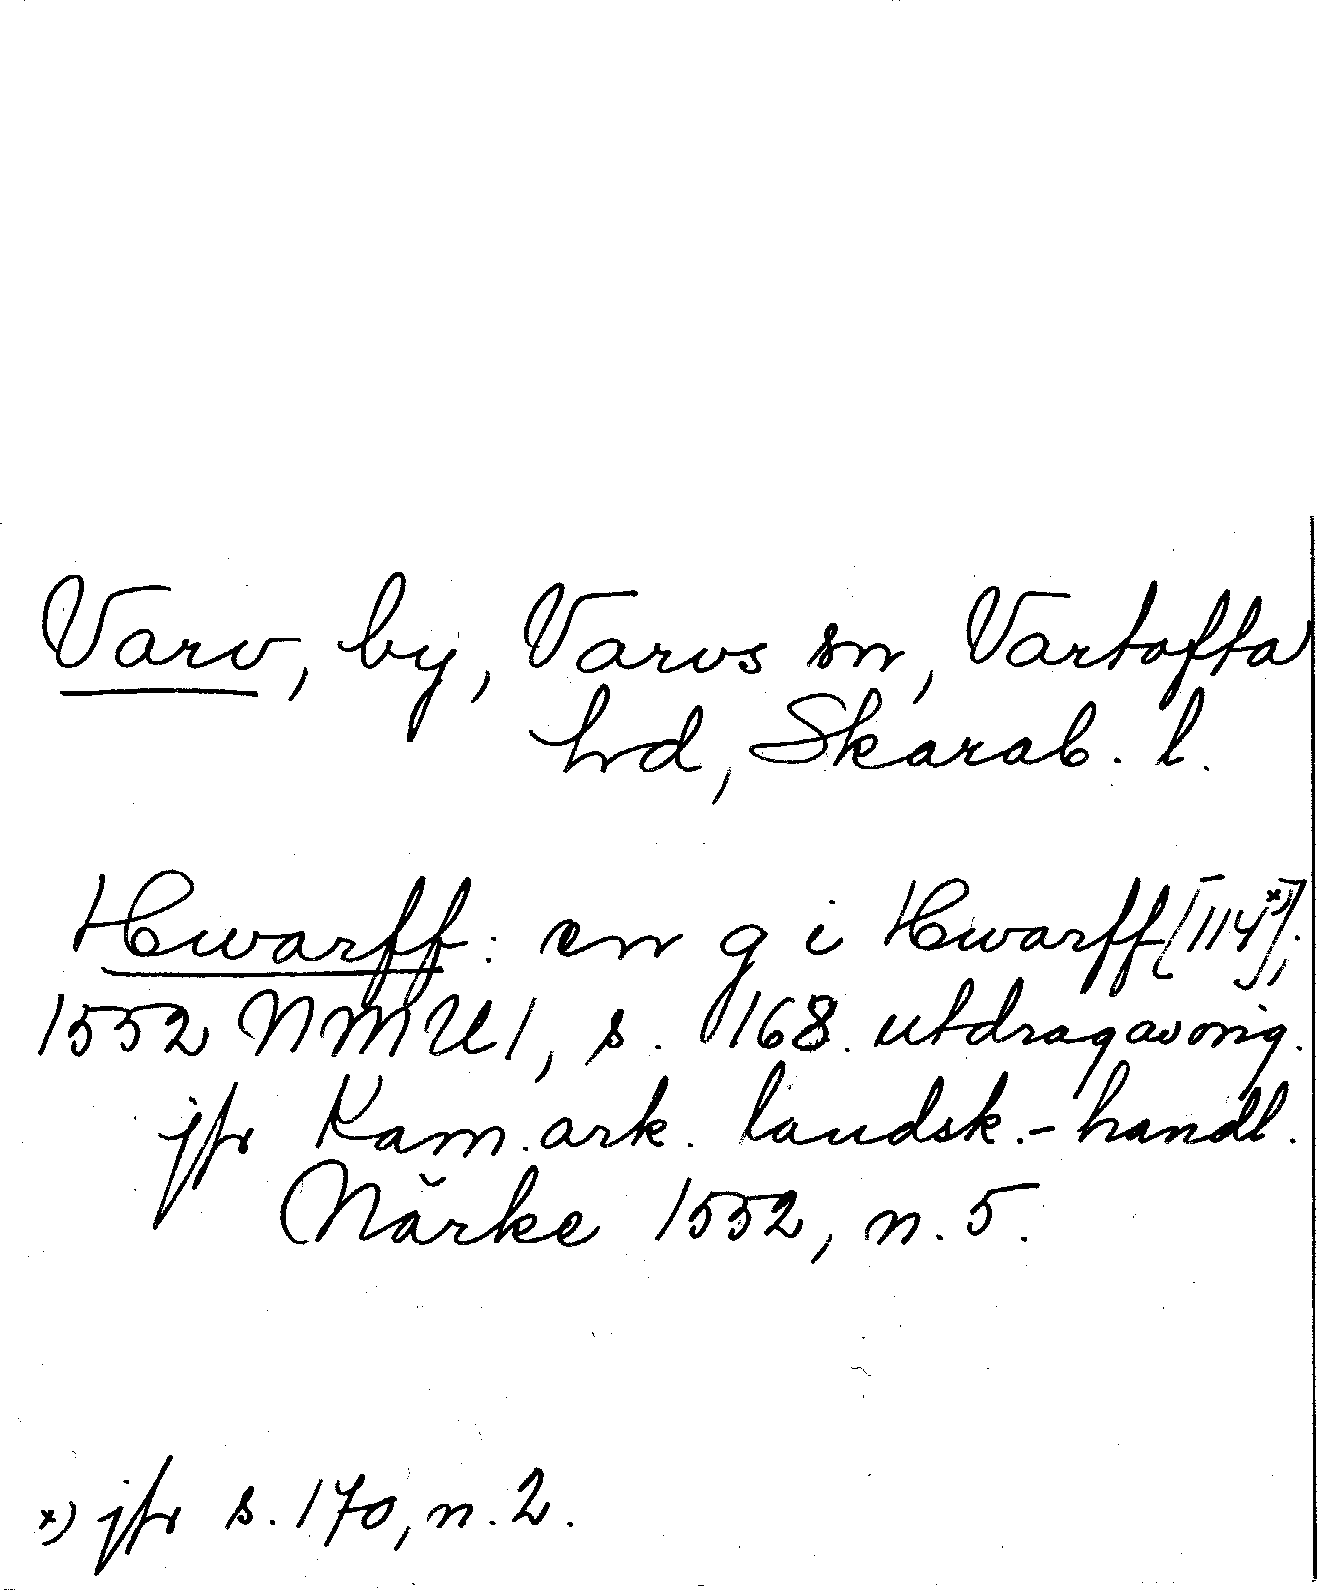 Varv, by, Varvs sn, Vartofta
hd, Skarab. l.
Hwarff: en g i Hwarff [114*)];
1552 NMU1, s. 168. utdrag av orig.
jfr Kam. ark. landsk.-handl.
Närke 1552, n. 5.
*) jfr s. 170, n. 2.